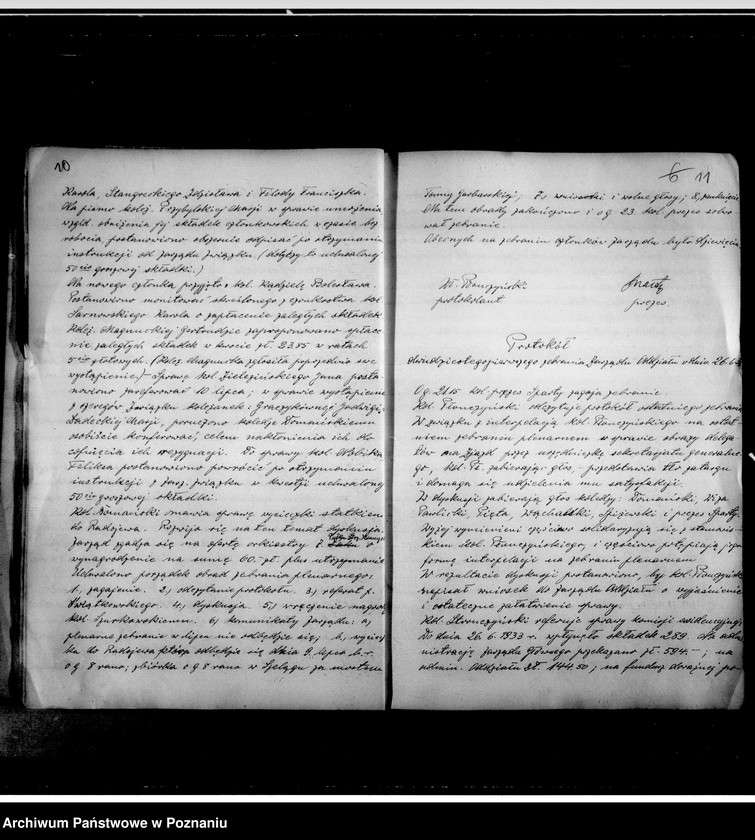 10
Karola, Stangreckiego Zdzisława i Filody Franciszka.
Na pismo kolej. Przybylskiej Marji w sprawie umożenia
wzgld. obniżenia jej składek członkowskich w czasie bez
robocia postanowiono obszernie odpisać po otrzymaniu
instrukcji od Zarządu Związku (dotyczy to uchwalonej
50cio groszowej składki.)
Na nowego członka przyjęto: kol. Kądzielę Bolesława.
Postanowiono monitować skreślonego z członkostwa kol.
Sarnowskiego Karola o zapłacenie zaległych składek
Kolej. Magnuckiej Gertrudzie zaproponowano spłace-
nie zaległych składek w kwocie zł. 23.85 w ratach
5cio złotowych. (Kolej. Magnucka zgłosiła poprzednio swe
wystąpienie.) - Sprawę kol. Zielezińskiego Jana posta-
nowiono zareferować 10 lipca; w sprawie wystąpienia
z szeregów Związku koleżanek: Graczykówny Jadwigi,
Sadeckiej Marji, poruczono koledze Romańskiemu
osobiście konferować, celem nakłonienia ich do
cofnięcia ich rezygnacji. Do sprawy kol.
Feliksa postanowiono powrócić po otrzymaniu
instrukcji z Zarz. Związku w kwestji uchwalonej
50cio groszowej składki.
Kol. Romański omawia sprawę wycieczki statkiem
do Radzewa. Rozwija się na ten temat dyskusja.
Zarząd zgadza się na ofertę orkiestry z o
wynagrodzenie na sumę 60.- zł. plus utrzymanie
Uchwalono porządek obrad zebrania plenarnego;
1, zagajenie. 2) odczytanie protokołu. 3) referat p.
Świątkowskiego. 4, dyskusja. 5) wręczenie nagrody
kol. Szurkowskiemu. 6) komunikaty Zarządu: a)
plenarne zebranie w lipcu nie odbędzie się; b, wyciecz-
ka do Radzewa odbędzie się dnia 9. lipca b.r.
o g 8 rano; zbiórka o g 8 rano w Szelągu za mostem
6 11
Tamy Garbarskiej; 7, wnioski i wolne głosy; 8, zamknięcie
Na tem obrady zakończono i o g. 23. kol. prezes solwo
wał zebranie.
Obecnych na zebraniu członków Zarządu było dziewięciu
St. Pionczyński
protokolant
Sparty
prezes.
Protokół
dwudziestegopierwszego zebrania Zarządu Oddziału w dniu 26.6.33
O g. 21.15 kol. prezes Sparty zagaja zebranie.
Kol. Pionczyński odczytuje protokół ostatniego zebrania
W związku z interpelacją kol. Pionczyńskiego na ostat-
niem zebraniu plenarnem w sprawie obrazy delega-
tów na Zjazd przez urzędniczkę sekretarjatu generalne-
go, kol. Pi. zabierając głos, przedstawia tło zatargu
i domaga się udzielenia mu satysfakcji.
W dyskusji zabierają głos koledzy: Romański, Wiza
Pawlicki, Pięta, Wachalski, Spiżewski i prezes Sparty.
Wyżej wymienieni częściowo solidaryzują się z stanowis-
kiem kol. Pionczyńskiego, i częściowo potępiają jego
formę interpelacji na zebraniu plenarnem
W rezultacie dyskusji postanowiono, by kol. Pionczyński
napisał wniosek do Zarządu Oddziału o wyjaśnienie
i ostateczne załatwienie sprawy.
Kol. Słomczyński referuje sprawy komisji ewidencyjnej
Do dnia 26.6.1933 r. wpłynęło składek 289. Na admi
nistrację Zarządu Głównego przekazano zł. 594.-; na
admin. Oddziału zł. 144.50; na fundusz doraźnej po-
Archiwum Państwowe w Poznaniu